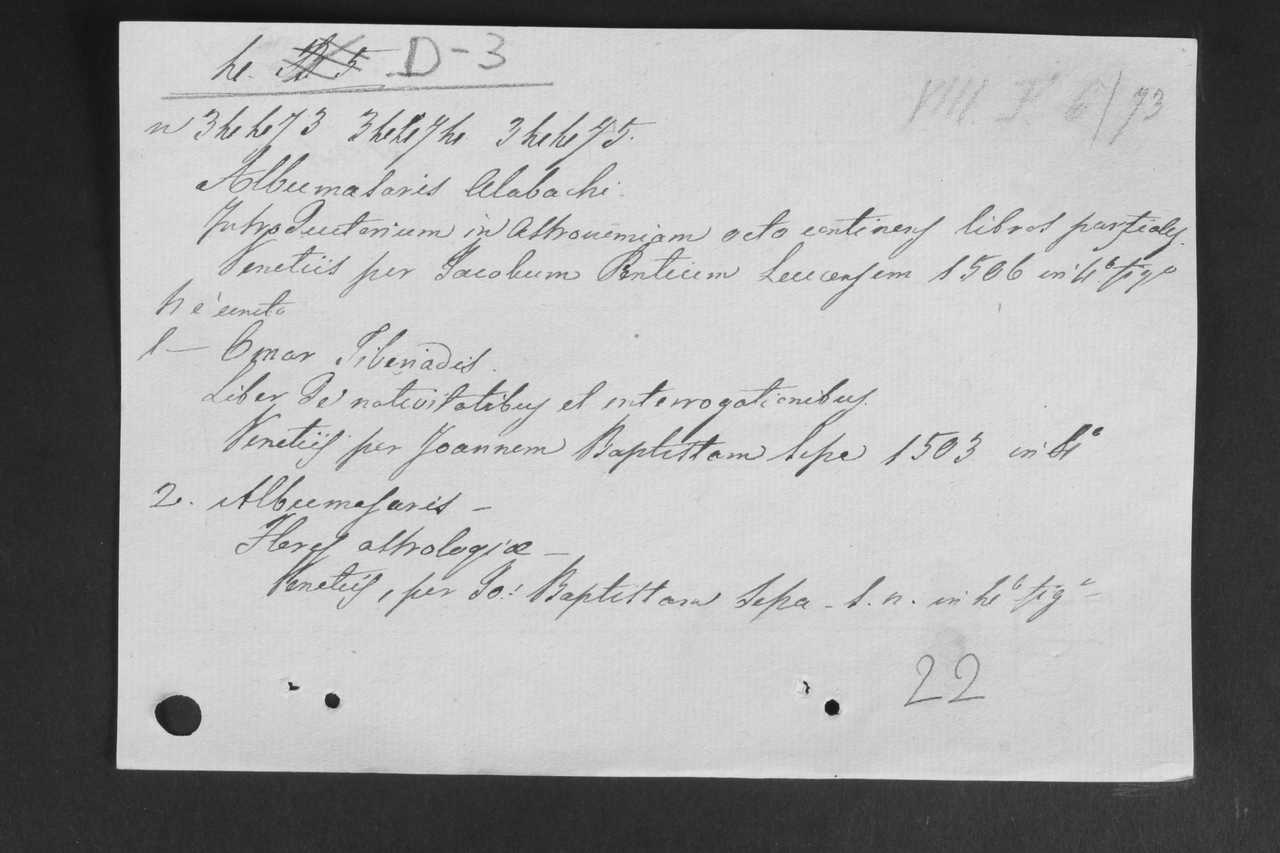 4. D-3
VIII. D. 6/73
n 34473 34474 34475.
Albumasaris Alabachi.
Introductorium in Astronomiam octo continens libros partiales.
Venetiis per Jacobum Pentium Leucensem 1506 in 4° fig°
N è unito
1 — Omar Tiberiadis.
Liber de nativitatibus et interrogationibus.
Venetiis per Joannem Baptistam Sepa 1503 in 4°
2. Albumasaris —
Flores astrologiæ —
Venetiis, per Jo: Baptistam Sepa - s. n. in 4° fig° —
22